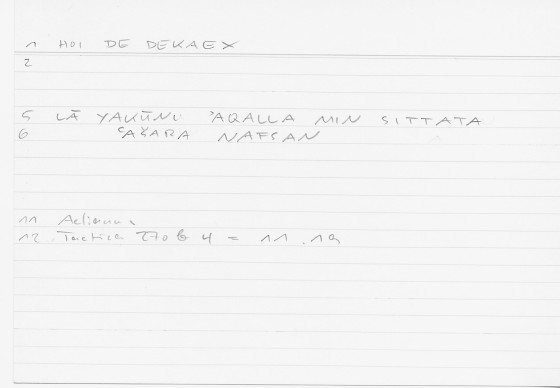 1 HOI DE DEKAEX
2
5 LĀ YAKŪNU 'AQALLA MIN SITTATA
6 ʿAŠARA NAFSAN
11 Aelianus
12 Tactica 270 b 4 = 11.19